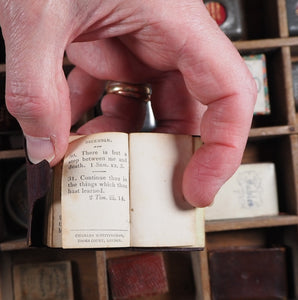 DECEMBER.
30. There is but a
step between me and
death. 1 Sam. xx. 3.
31. Continue thou in
the things which thou
hast learned.
2 Tim. iii. 14.
CHARLES WHITTINGHAM
TOOKS COURT, LONDON